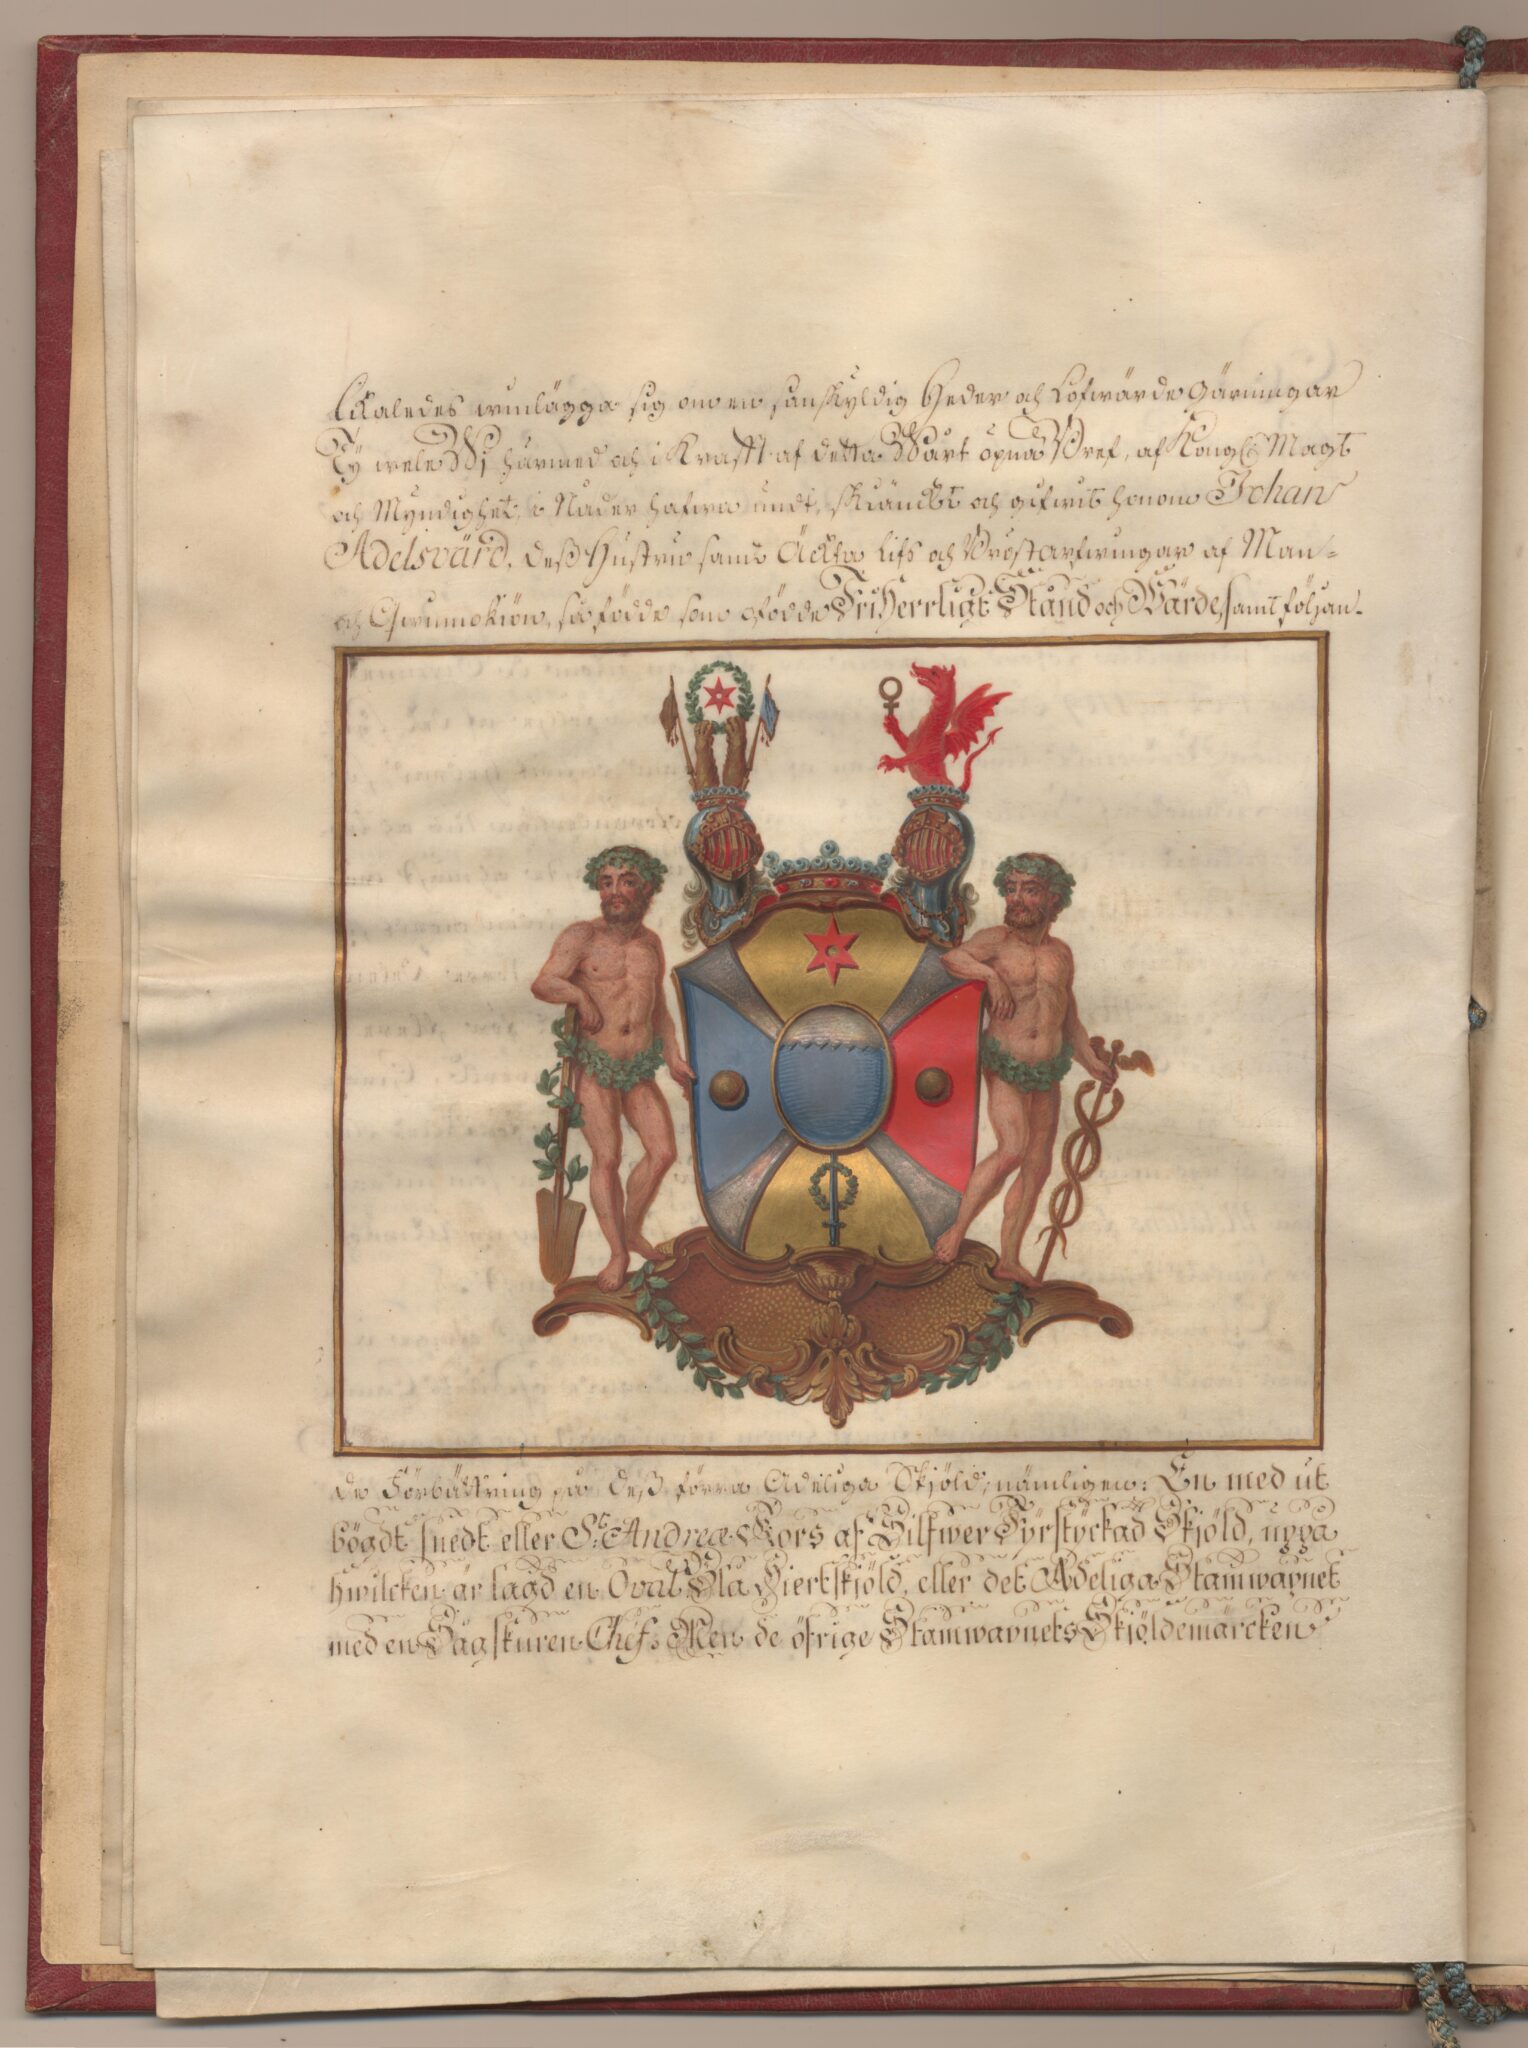 likaledes winlägga sig om en sanskyldig Heder och Lofwärde Gärningar
Ty wele Wi härmed och i Krafft af detta Wårt öpna Bref, af Kongl. Magt
och Myndighet, i Nåder hafwa undt, skiänckt och gifwit honom Johan
Adelsvärd, deß Hustru samt Äckta Lifs och Bröstarfwingar af Man-
och Qwinnokiön, så födde som ofödde FriHerrligt Stånd och Wärde, samt följan-
de Förbättring på deß förra Adeliga Skjöld, nämligen: En med ut
bögdt snedt eller St. Andreæ Kors af Silfwer Fyrstyckad Skjöld, uppå
hwilcken är lagd en Oval Blå Hiertskjöld, eller det Adeliga Stamwapnet
med en Sågskuren Chef: Men de öfrige Stamwapnets Skjöldemärcken